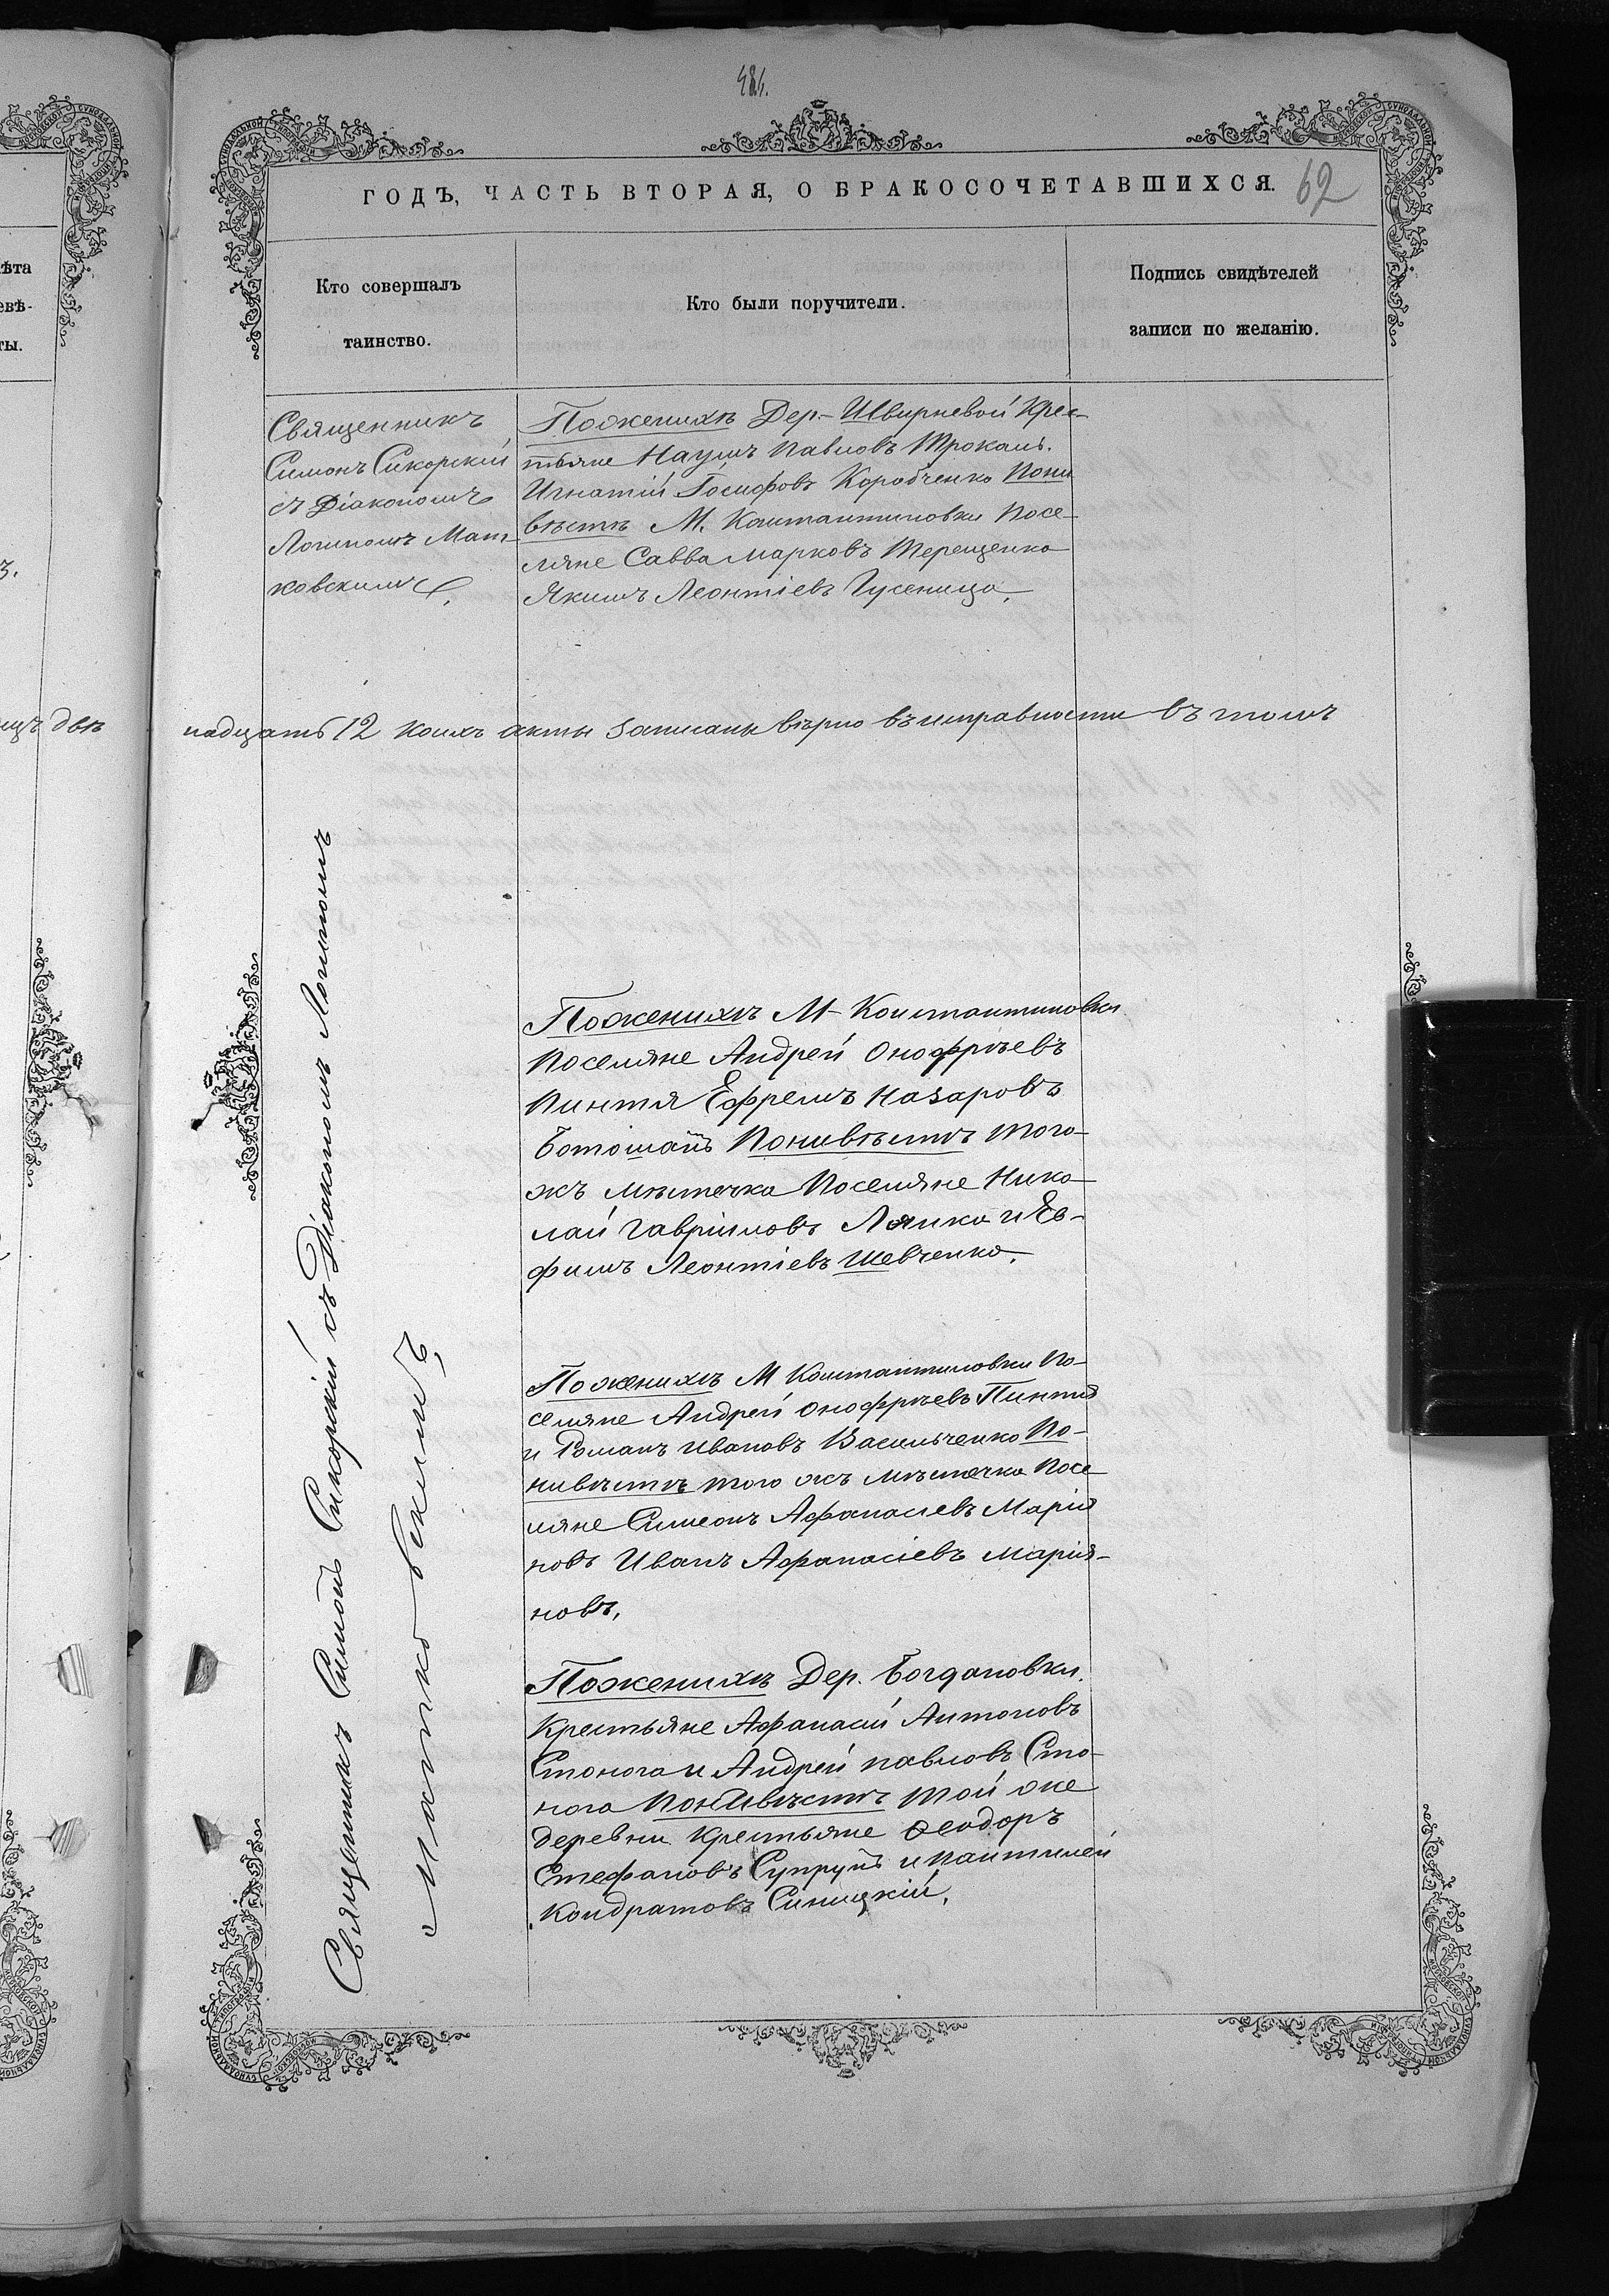 484.
ГОДЪ, ЧАСТЬ ВТОРАЯ, О БРАКОСОЧЕТАВШИХСЯ. 62
Кто совершалъ
таинство.
Кто были поручители.
Подпись свидѣтелей
записи по желанію.
ѣта
евѣ-
ты.
Священникъ
Симонъ Сикорскій
съ Діакономъ
Логиномъ Мат-
ковскимъ.
Поженихѣ Дер- Шви­рневой Крес-
тьяне Наумъ Павловъ Трокаль.
Игнатій Іосифовъ Коробченко Поне
вѣстѣ М. Константиновки Посе-
ляне Савва Марковъ Терещенко
Якимъ Леонтіевъ Гусеница.
двѣ
надцать 12 коихъ акты записаны вѣрно въ исправности въ томъ
Священникъ Симонъ Сикорскій съ Діакономъ Логиномъ
Матковскимъ,
Поженихѣ М- Константиновки
Поселяне Андрей Онофрѣевъ
Пинтя Ефремъ Назаровъ
Ботошанъ Понивѣстѣ того-
жъ мѣстечка Поселяне Нико-
лай Гавріиловъ Лянка и Ев-
фимъ Леонтіевъ Шевченко.
Поженихѣ М Константиновки По-
селяне Андрей Онофрѣевъ Пинтя
и Романъ Ивановъ Васильченко По-
нивѣстѣ того жъ мѣстечка Посе
ляне Симеонъ Афанасіевъ Марія
новъ Иванъ Афанасіевъ Марія-
новъ.
Поженихѣ Дер. Богдановки.
Крестьяне Афанасій Антоновъ
Стонога и Андрей Павловъ Сто-
нога Понивѣстѣ той же
деревни Крестьяне Ѳеодоръ
Стефановъ Супрунъ и Пантилей
Кондратовъ Синицкій.